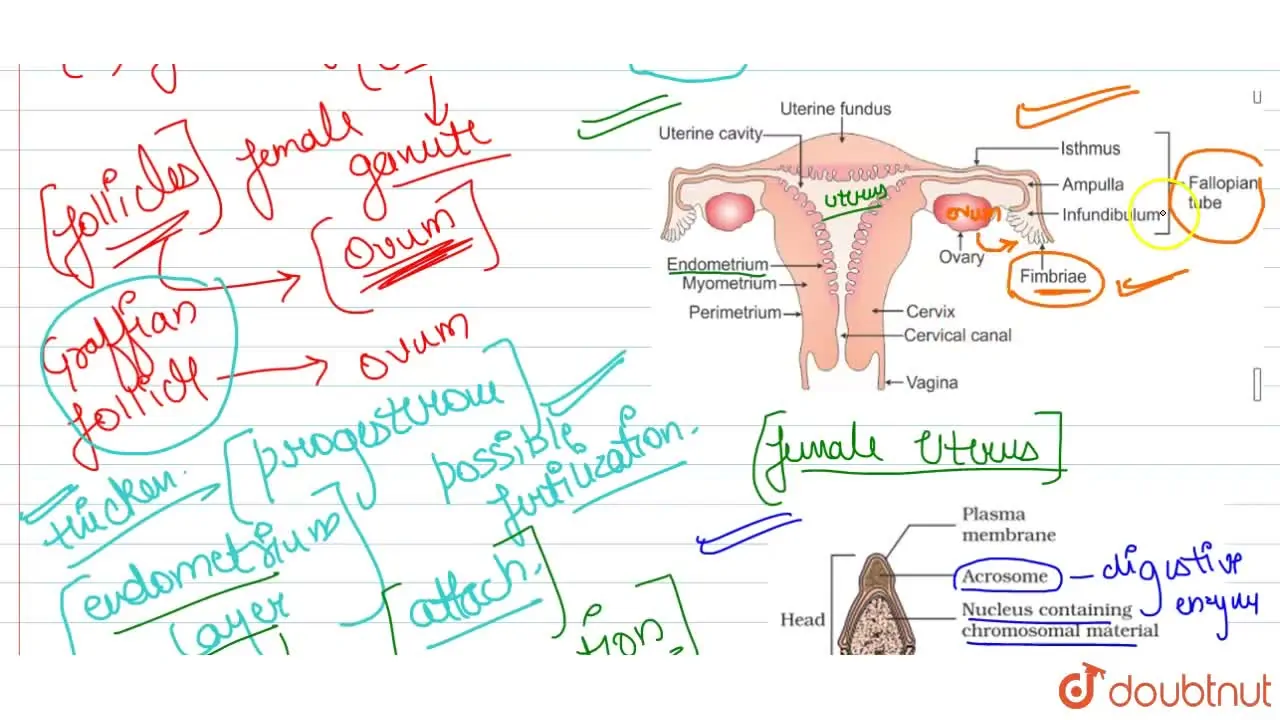 female
ganute
[follicles]
[Ovum]
Graffian
follicle
ovum
[progesterone
possible
fertilization.
thicken.
[endometrium
layer
[attach.]
tion
Uterine fundus
Uterine cavity
Isthmus
Ampulla
Infundibulum
Fallopian
tube
uterus
ovum
Ovary
Fimbriae
Endometrium
Myometrium
Perimetrium
Cervix
Cervical canal
Vagina
[female Uterus]
Plasma
membrane
Acrosome
digestive
Head
Nucleus containing
chromosomal material
doubtnut